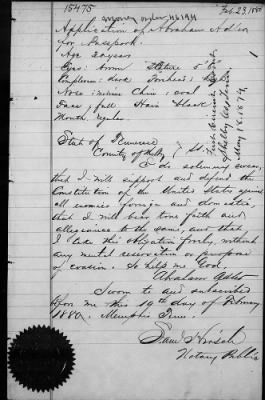 15475
money order 46194
Feb. 23, 1880
Application of Abraham
for Passport.
Age 30 years
Eyes: brown Stature 5'
Complexion: dark Forehead: high
Nose: Chin: oval
Face: full Hair black
Mouth: regular
State of Tennessee
County of Shelby } SS.
I do solemnly swear,
that I will support and defend the
Constitution of the United States against
all enemies foreign and domestic
that I will bear true faith and
allegiance to the same, and that
I take this obligation freely, without
any mental reservation or purpose
of evasion. So help me God.
Abraham
Sworn to and subscribed
before me this 19th day of February
1880. Memphis Tenn.
Notary Public
Shelby
May 16, 1874